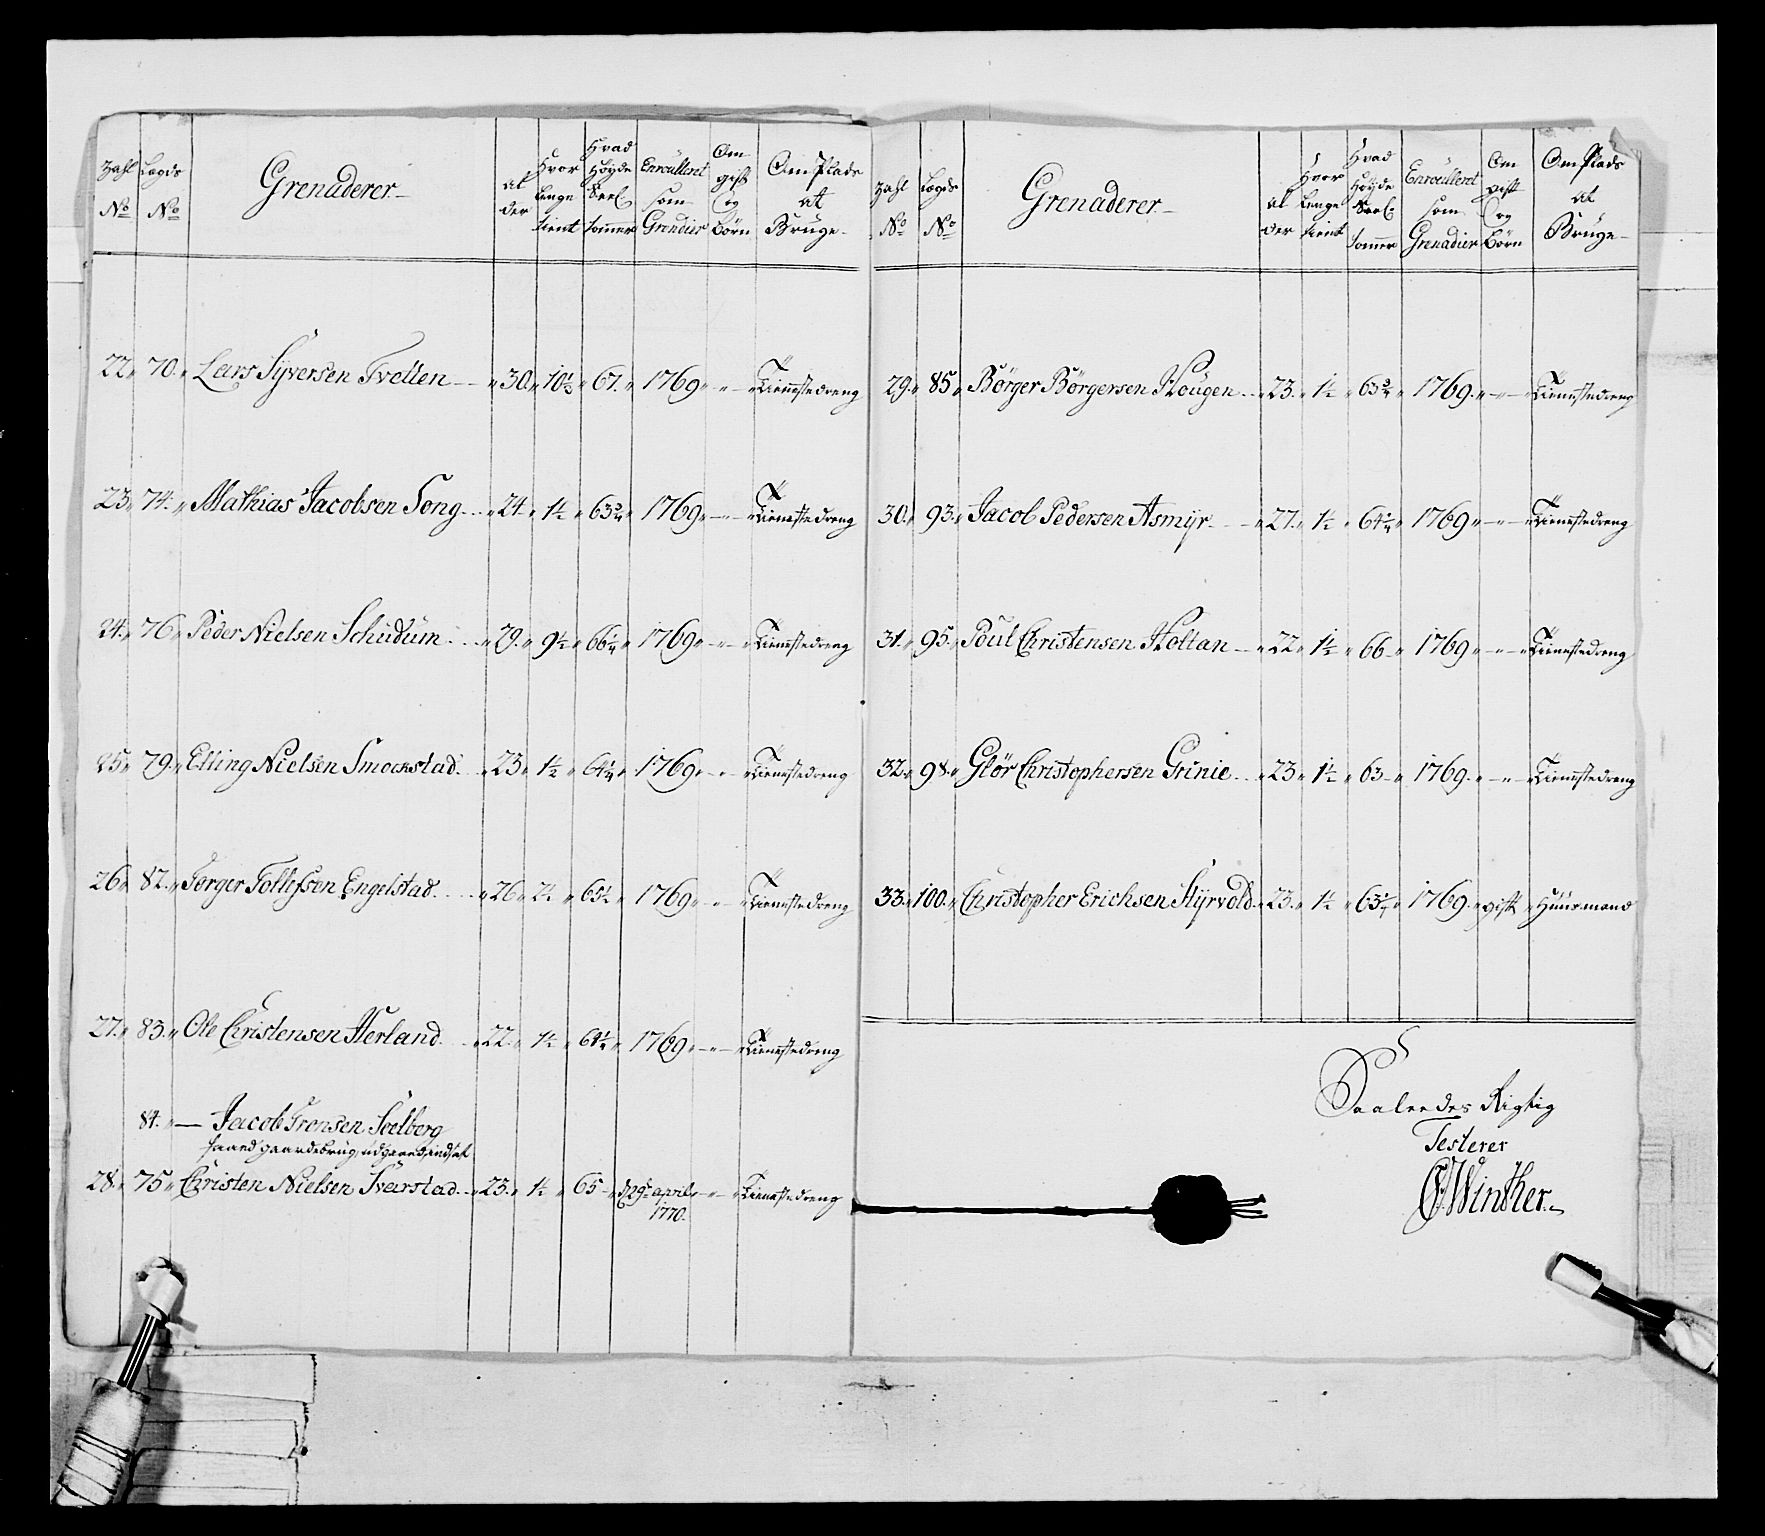 Zahl No | Lægds No | Grenaderer | Al der | Hvor lenge tient | Hvad Höyde Sæel. tommer | Enroullerit som Grendier | Om gift og börn | Om Plads at Bruge
22 70. Lars Syversen Tvetten 30. 10½ 67. 1769 " Tienestedreng
23. 74. Mathias Jacobsen Song 24. 1½ 63¾ 1769 " Tienestedreng
24. 76 Peder Nielsen Schudum 29. 9½ 66¼ 1769 " Tienestedreng
25 79. Elling Nielsen Smockstad 23 1½ 64¼ 1769 " Tienestedreng
26 82. Torger Tollefsen Engelstad 26 2½ 65½ 1769 " Tienestedreng
27. 83. Ole Christensen Herland 22. 1½ 64½ 1769 " Tienestedreng
84. — Jacob Tronsen Soelberg
faaed gaardebrug, udgaaed, indsat
28. 75 Christen Nielsen Svarstad 23. 1½ 65 d 29de april 1770. " Tienestedreng
Zahl No | Lægds No | Grenaderer | Al der | Hvor lenge tient | Hvad Höyde Sæel. tommer | Enroullerit som Grenadier | Om gift og Börn | Om Plads at Bruge
29. 85 Börger Börgersen Hougen 23. 1½ 63¾ 1769. " Tienestedreng
30. 93. Jacob Pedersen Asmyr 27. 1½ 64¼ 1769 " Tienestedreng
31. 95. Poul Christensen Holtan 22 1½ 66 1769 " Tienestedreng
32. 98. Glör Christophersen Grinie 23 1½ 63 1769. " Tienestedreng
33. 100. Christopher Erichsen Styrvold 23. 1½ 63¼ 1769. gift Huusmand
Saaleedes Rigtig
Testerer
Winther